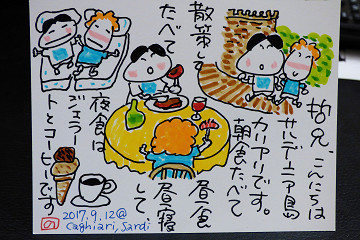 皆兄、こんにちは
サルデーニア島
カリアリです。
朝食たべて
散策して
たべて
昼食
昼寝
して、
夜食は
ジェラー
トとコーヒーです
2017.9.12@
Caghiari, Sardi
の